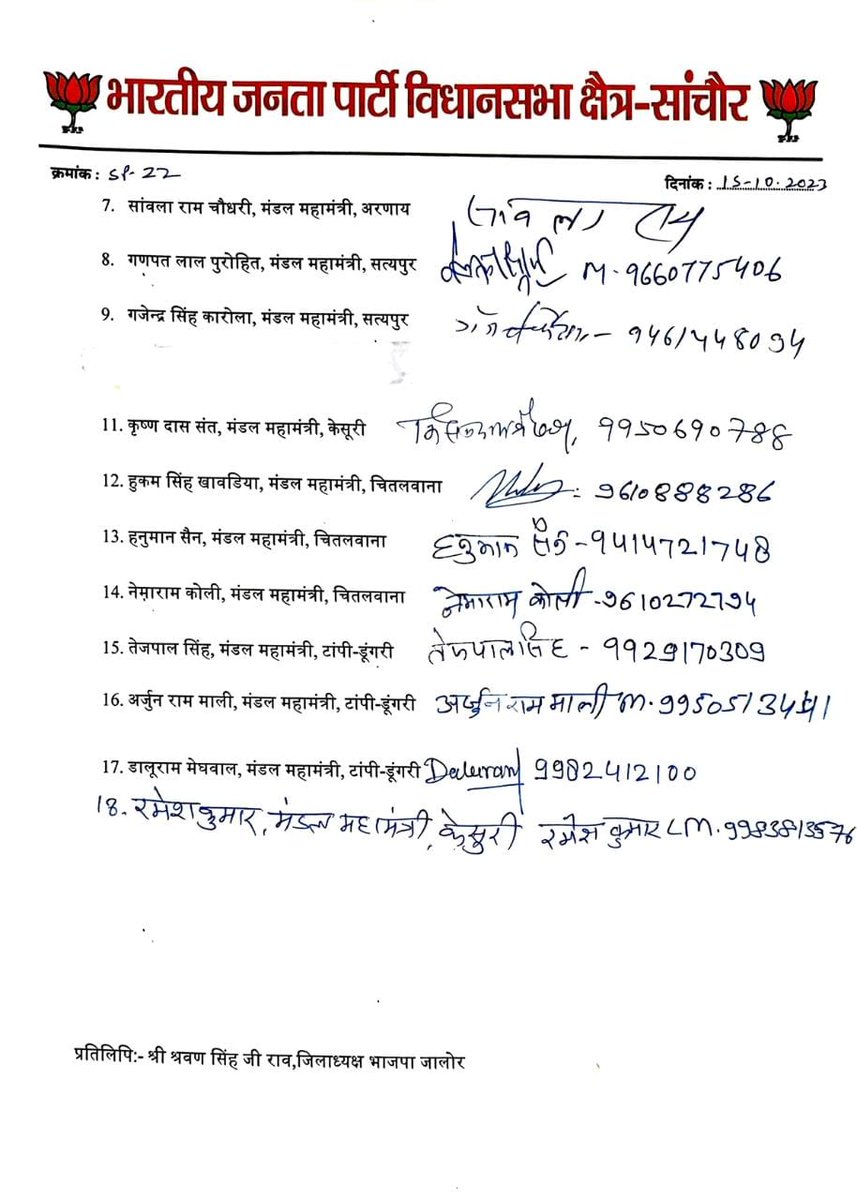 भारतीय जनता पार्टी विधानसभा क्षैत्र-सांचौर
क्रमांक : SP-22 दिनांक : 15-10-2023
7. सांवला राम चौधरी, मंडल महामंत्री, अरणाय
8. गणपत लाल पुरोहित, मंडल महामंत्री, सत्यपुर M-9660775406
9. गजेन्द्र सिंह कारोला, मंडल महामंत्री, सत्यपुर - 9461448094
11. कृष्ण दास संत, मंडल महामंत्री, केसूरी 9950690788
12. हुकम सिंह खावडिया, मंडल महामंत्री, चितलवाना 9610888286
13. हनुमान सैन, मंडल महामंत्री, चितलवाना हनुमान सैन -9414721748
14. नेमाराम कोली, मंडल महामंत्री, चितलवाना नेमाराम कोली -9610272794
15. तेजपाल सिंह, मंडल महामंत्री, टांपी-डूंगरी तेजपालसिंह - 9929170309
16. अर्जुन राम माली, मंडल महामंत्री, टांपी-डूंगरी अर्जुन राम माली M.
17. डालूराम मेघवाल, मंडल महामंत्री, टांपी-डूंगरी Daluram 9982412100
18. रमेशकुमार, मंडल महामंत्री, केसुरी रमेश कुमार M.9983813576
प्रतिलिपि:- श्री श्रवण सिंह जी राव,जिलाध्यक्ष भाजपा जालोर